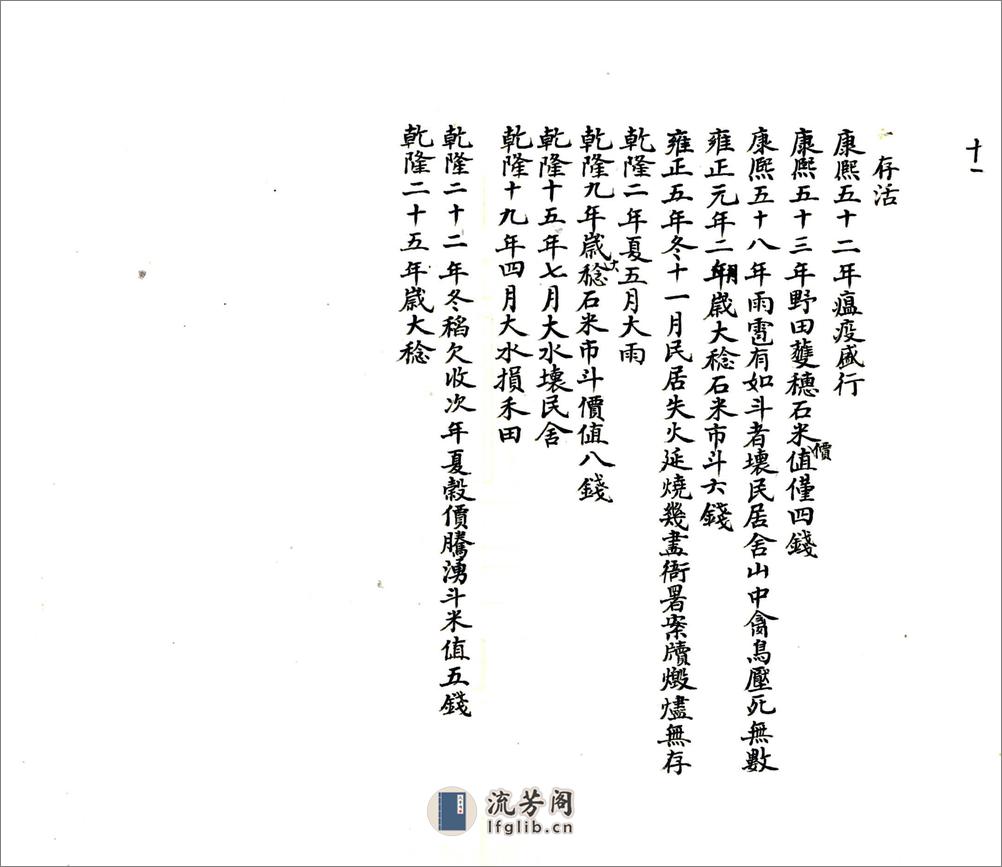 十一
一存活
康熙五十二年瘟疫盛行
康熙五十三年野田蘴穗石米價值僅四錢
康熙五十八年雨雹有如斗者壞民居舍山中禽鳥壓死無數
雍正元年二月歲大稔石米市斗六錢
雍正五年冬十一月民居失火延燒幾盡衙署案牘燬燼無存
乾隆二年夏五月大雨
乾隆九年歲大稔石米市斗價值八錢
乾隆十五年七月大水壞民舍
乾隆十九年四月大水損禾田
乾隆二十二年冬稻欠收次年夏穀價騰湧斗米值五錢
乾隆二十五年歲大稔
流芳阁
lfglib.cn